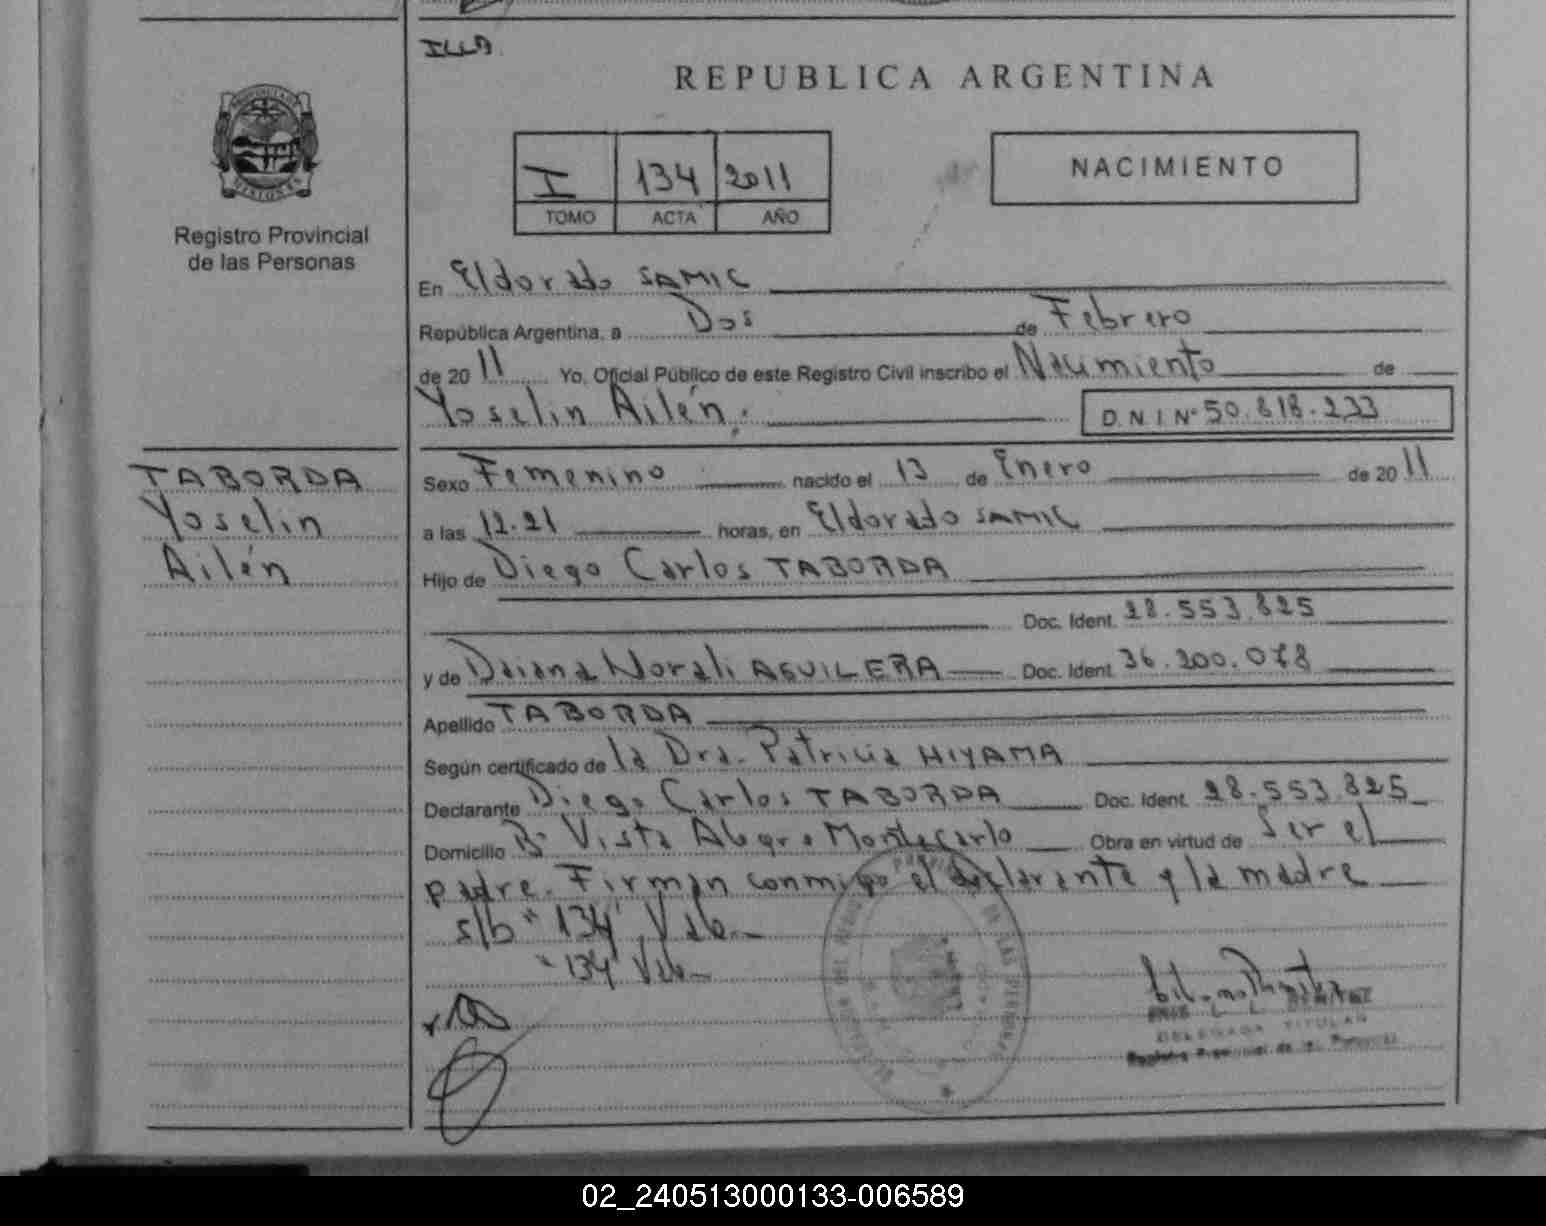 ILLA.
REPUBLICA ARGENTINA
I 134 2011
TOMO ACTA AÑO
NACIMIENTO
Registro Provincial
de las Personas
En Eldorado SAMIC
República Argentina, a Dos de Febrero
de 2011 Yo, Oficial Público de este Registro Civil inscribo el Nacimiento de
Yoselin Ailén. D.N.I Nº 50.818.233
TABORDA
Yoselin
Ailén
Sexo Femenino nacido el 13 de Enero de 2011
a las 12.21 horas, en Eldorado SAMIC
Hijo de Diego Carlos TABORDA
Doc. Ident. 28.553.825
y de Daiana Norali AGUILERA Doc. Ident. 36.200.078
Apellido TABORDA
Según certificado de la Dra. Patricia HIYAMA
Declarante Diego Carlos TABORDA Doc. Ident. 28.553.825
Domicilio Bº Vista Alegre Montecarlo Obra en virtud de ser el
padre. Firman conmigo el declarante y la madre
s/b "134" Vale.
"134" Vale
DELEGADA TITULAR
Registro Provincial de las Personas
02_240513000133-006589